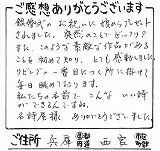 ご感想ありがとうございます
銀婚式のお祝いに娘からプレゼント
されました。突然のことでビックリで
す。このような素敵な作品がある
ことを初めて知り、とても感動しました。
リビングの一番目につく所に掛けて
毎日眺めております。
私たちの名前で、こんないい詩
ができるんですね。
名詩屋様、ありがとうございました。
ご住所 兵庫 都道府県 西宮 市